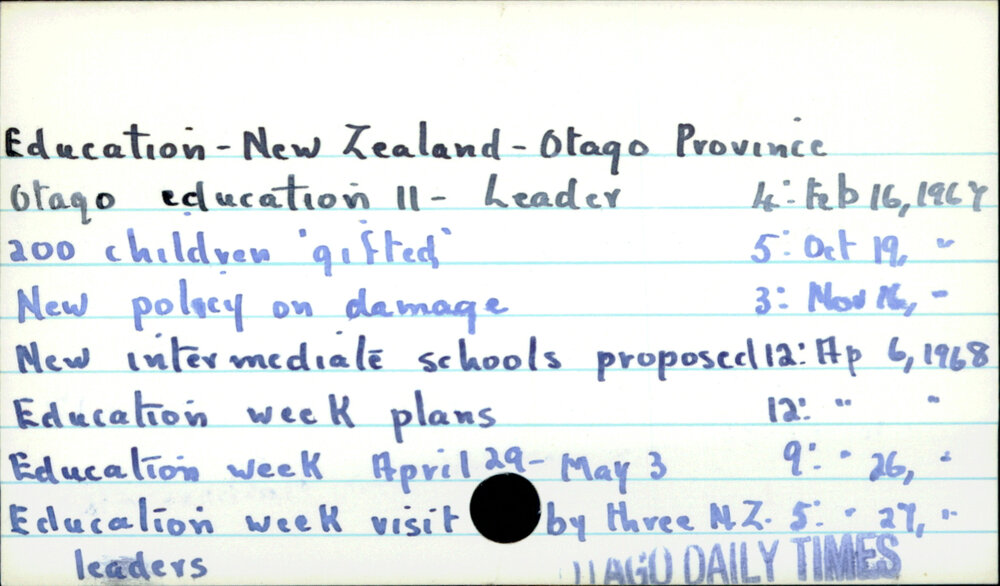 Education - New Zealand - Otago Province
Otago education II - Leader 4: Feb 16, 1967
200 children 'gifted' 5: Oct 19, "
New policy on damage 3: Nov 16, "
New intermediate schools proposed 12: Ap 6, 1968
Education week plans 12: " "
Education week April 29 - May 3 9: " 26, "
Education week visit by three N.Z. 5: " 27, "
leaders
OTAGO DAILY TIMES